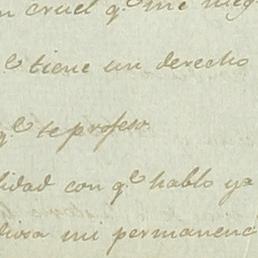 n cruel q.e me neg
q.e tiene un derecho
q.e te profeso.
lidad con q.e hablo ya
diosa mi permanenc